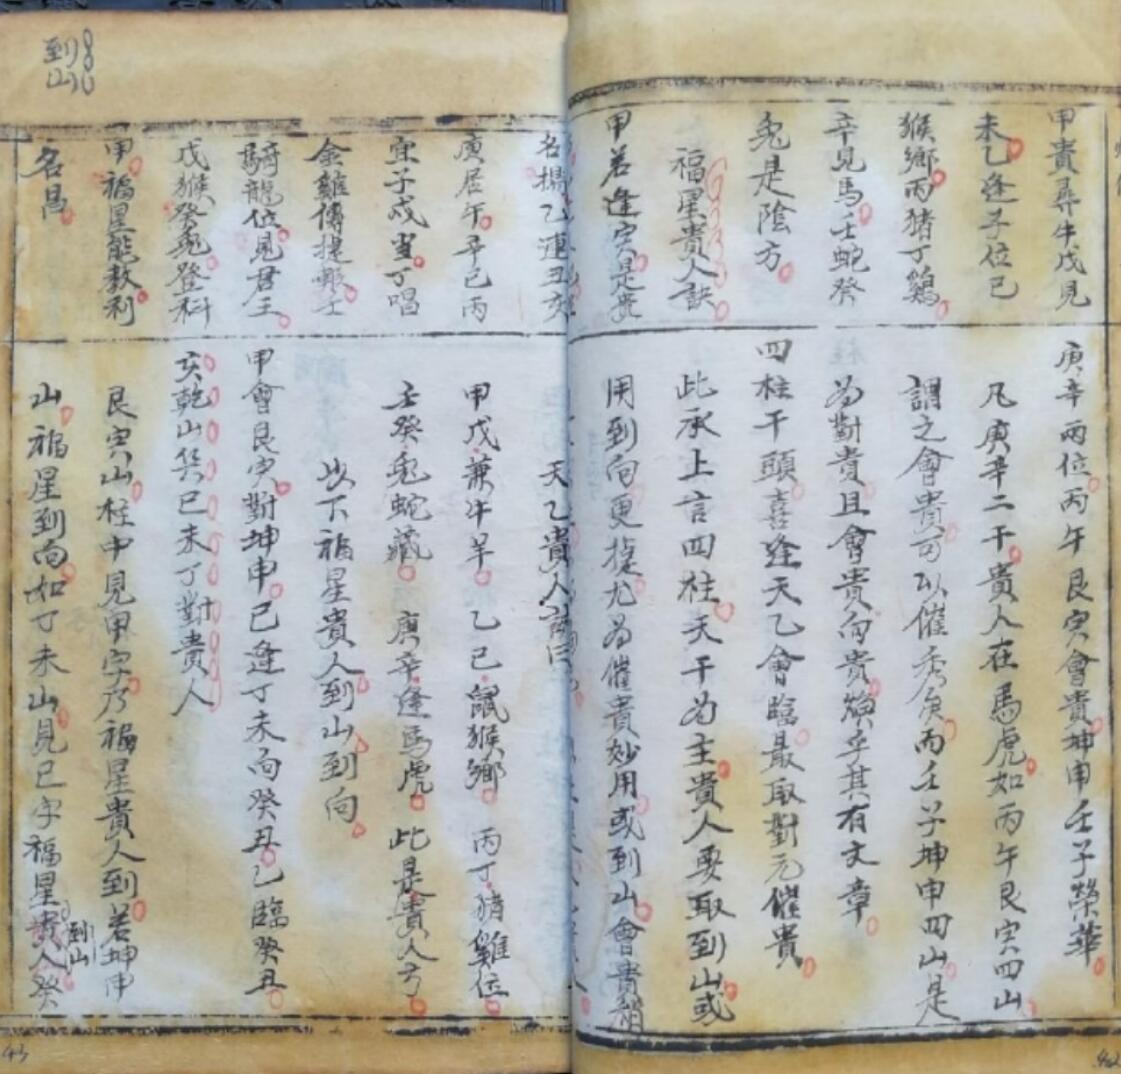 甲貴尋牛戊見
未乙逢子位己
猴鄉丙猪丁鷄
辛見馬壬蛇癸
兔是陰方
福星貴人訣
甲若逢寅是
庚辛兩位丙午艮寅會貴坤申壬子榮華
凡庚辛二干貴人在馬虎如丙午艮寅四山
謂之會貴可以催秀矣而壬子坤申四山是
為對貴且會貴向貴煥乎其有文章
四柱干頭喜逢天乙會臨最取對元催貴
此承上言四柱天干為主貴人要取到山或
用到向更捷尤為催貴妙用或到山會貴
名揚乙連丑亥
庚居午辛巳丙
宜子戌當丁唱
金雞傳捷報壬
騎龍位見君王
戊猴癸兔登科
甲福星能教利
名昌
天乙貴人
甲戊兼牛羊乙己鼠猴鄉丙丁猪雞位
壬癸兔蛇藏庚辛逢馬虎此是貴人方
以下福星貴人到山到向
甲會艮寅對坤申己逢丁未向癸丑乙臨癸丑
亥乾山巽巳未丁對貴人
艮寅山柱中見甲字乃福星貴人到若坤申
山福星到向如丁未山見己字福星貴人癸
到山
到山
43